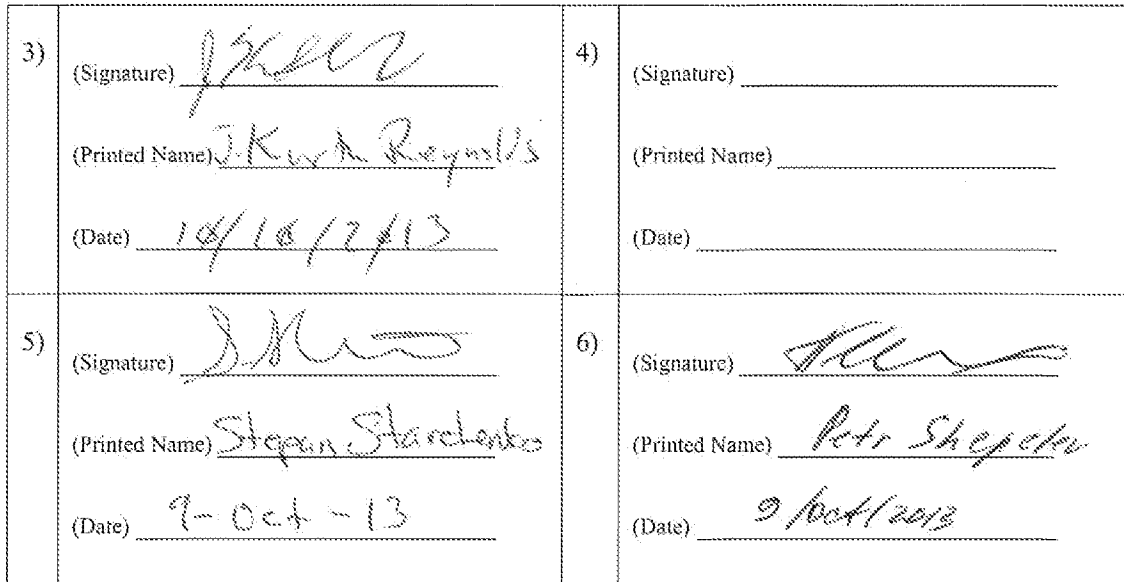 3)
(Signature)
(Printed Name) J. Kurth Reynolds
(Date) 10/10/2013
4)
(Signature)
(Printed Name)
(Date)
5)
(Signature)
(Printed Name) Stepan Starchenko
(Date) 9-Oct-13
6)
(Signature)
(Printed Name) Petr
(Date) 9/Oct/2013